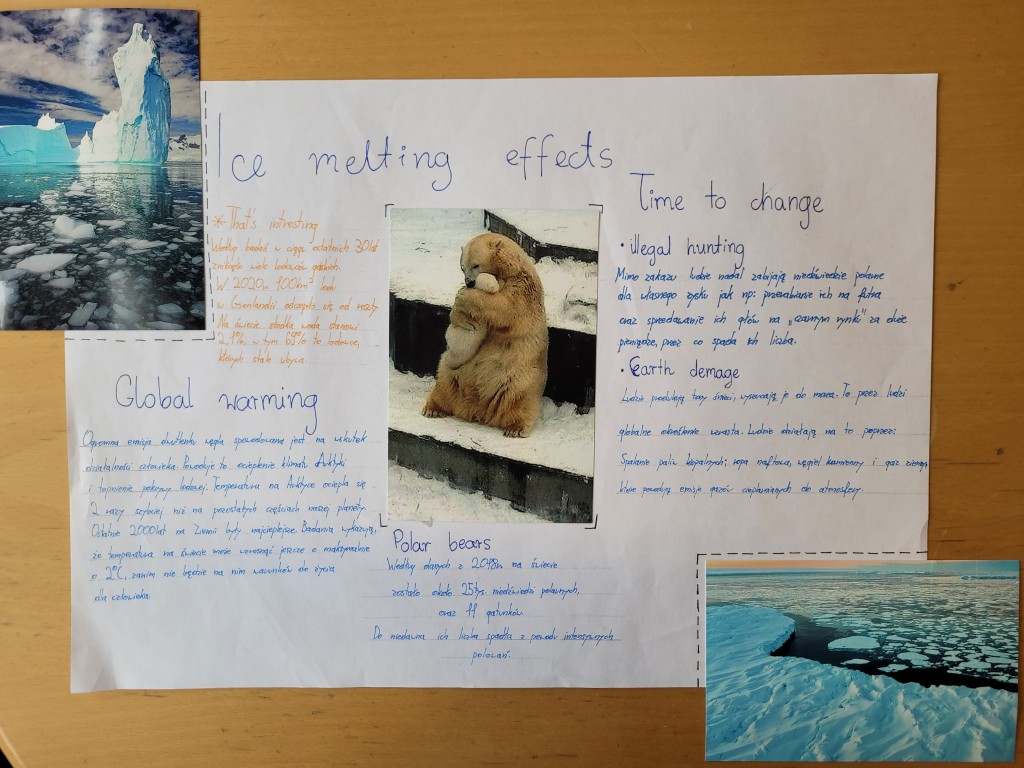 Ice melting effects
* That's intresting
Według badań w ciągu ostatnich 30 lat
zniknęło wiele lodowców górskich.
W 2020r. 100km² lodu
w Grenlandii odczepiło się od reszty
Na świecie słodka woda stanowi
2,1%, w tym 69% to lodowce,
których stale ubywa.
Global warming
Ogromna emisja dwutlenku węgla spowodowana jest na wskutek
działalności człowieka. Powoduje to ocieplenie klimatu Arktyki
i topnienie pokrywy lodowej. Temperatura na Arktyce ociepla się
2 razy szybciej niż na pozostałych częściach naszej planety.
Ostatnie 2000 lat na Ziemi były najcieplejsze. Badania wykazują,
że temperatura na świecie może wzrosnąć jeszcze o maksymalnie
o 2°C, zanim nie będzie na nim warunków do życia
dla człowieka
Polar bears
Według danych z 2018r. na świecie
zostało około 25tyś. niedźwiedzi polarnych,
oraz 11 gatunków
Do niedawna ich liczba spadła z powodu intensywnych
polowań.
Time to change
• illegal hunting
Mimo zakazu ludzie nadal zabijają niedźwiedzie polarne
dla własnego zysku jak np: przerabianie ich na futra
oraz sprzedawanie ich głów na „czarnym rynku" za duże
pieniądze, przez co spada ich liczba.
• Earth demage
Ludzie produkują tony śmieci, wyrzucają je do morza. To przez ludzi
globalne ocieplenie wzrasta. Ludzie działają na to poprzez:
Spalanie paliw kopalnych; ropa naftowa, węgiel kamienny i gaz ziemny
które powodują emisje gazów cieplarnianych do atmosfery.